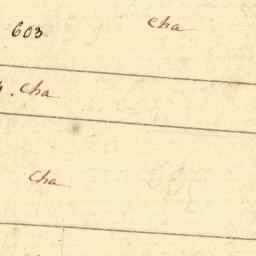 603 cha
. cha
cha